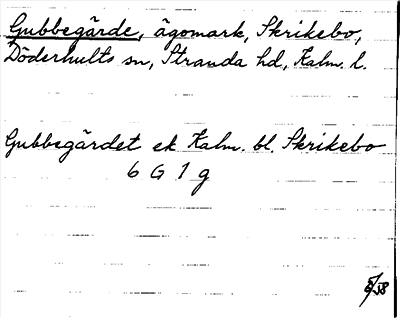 Gubbegärde, ägomark, Skrikebo,
Döderhults sn, Stranda hd, Kalm. l.
Gubbegärdet ek Kalm. bl. Skrikebo
6 G 1 g